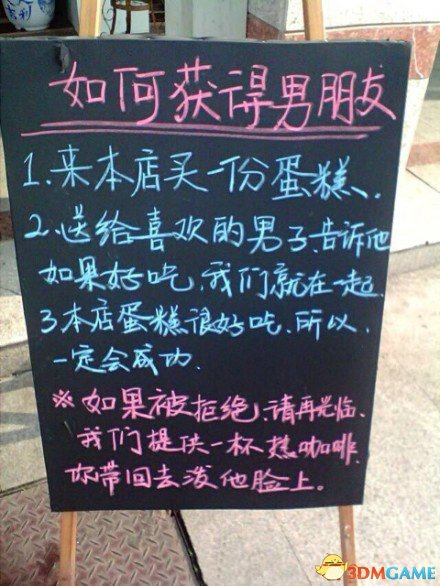 如何获得男朋友
1.来本店买一份蛋糕.
2.送给喜欢的男子.告诉他
如果好吃.我们就在一起.
3.本店蛋糕很好吃.所以.
一定会成功.
※如果被拒绝.请再光临.
我们提供一杯热咖啡.
你带回去泼他脸上。
3DMGAME